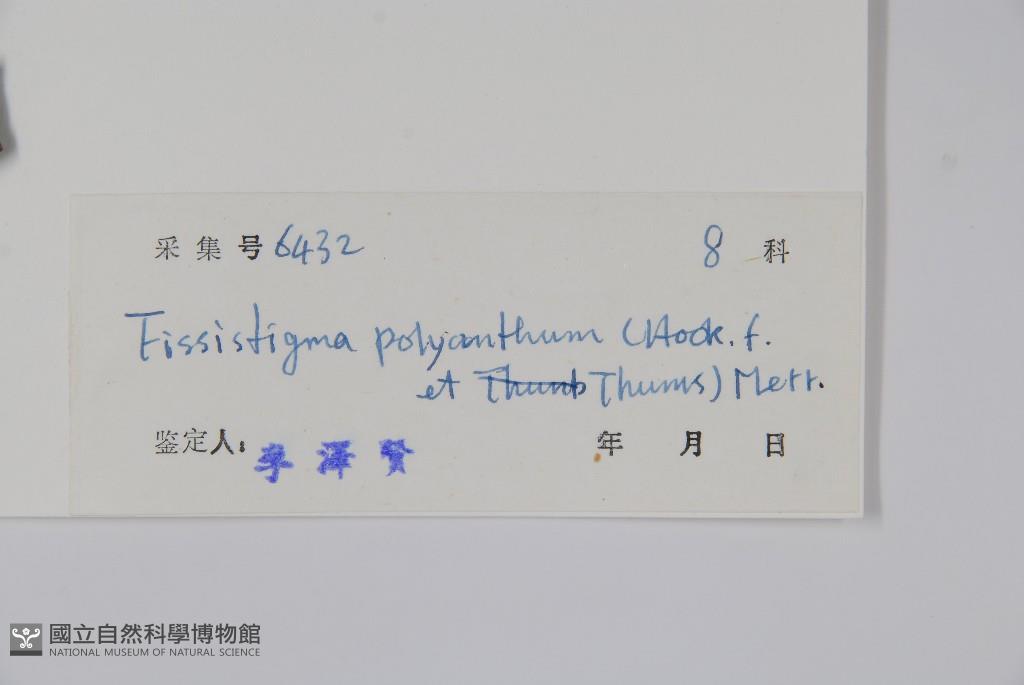 采集号 6432 8 科
Fissistigma polyanthum (Hook. f.
et Thumb Thums) Merr.
鉴定人: 李澤賢 年 月 日
國立自然科學博物館
NATIONAL MUSEUM OF NATURAL SCIENCE